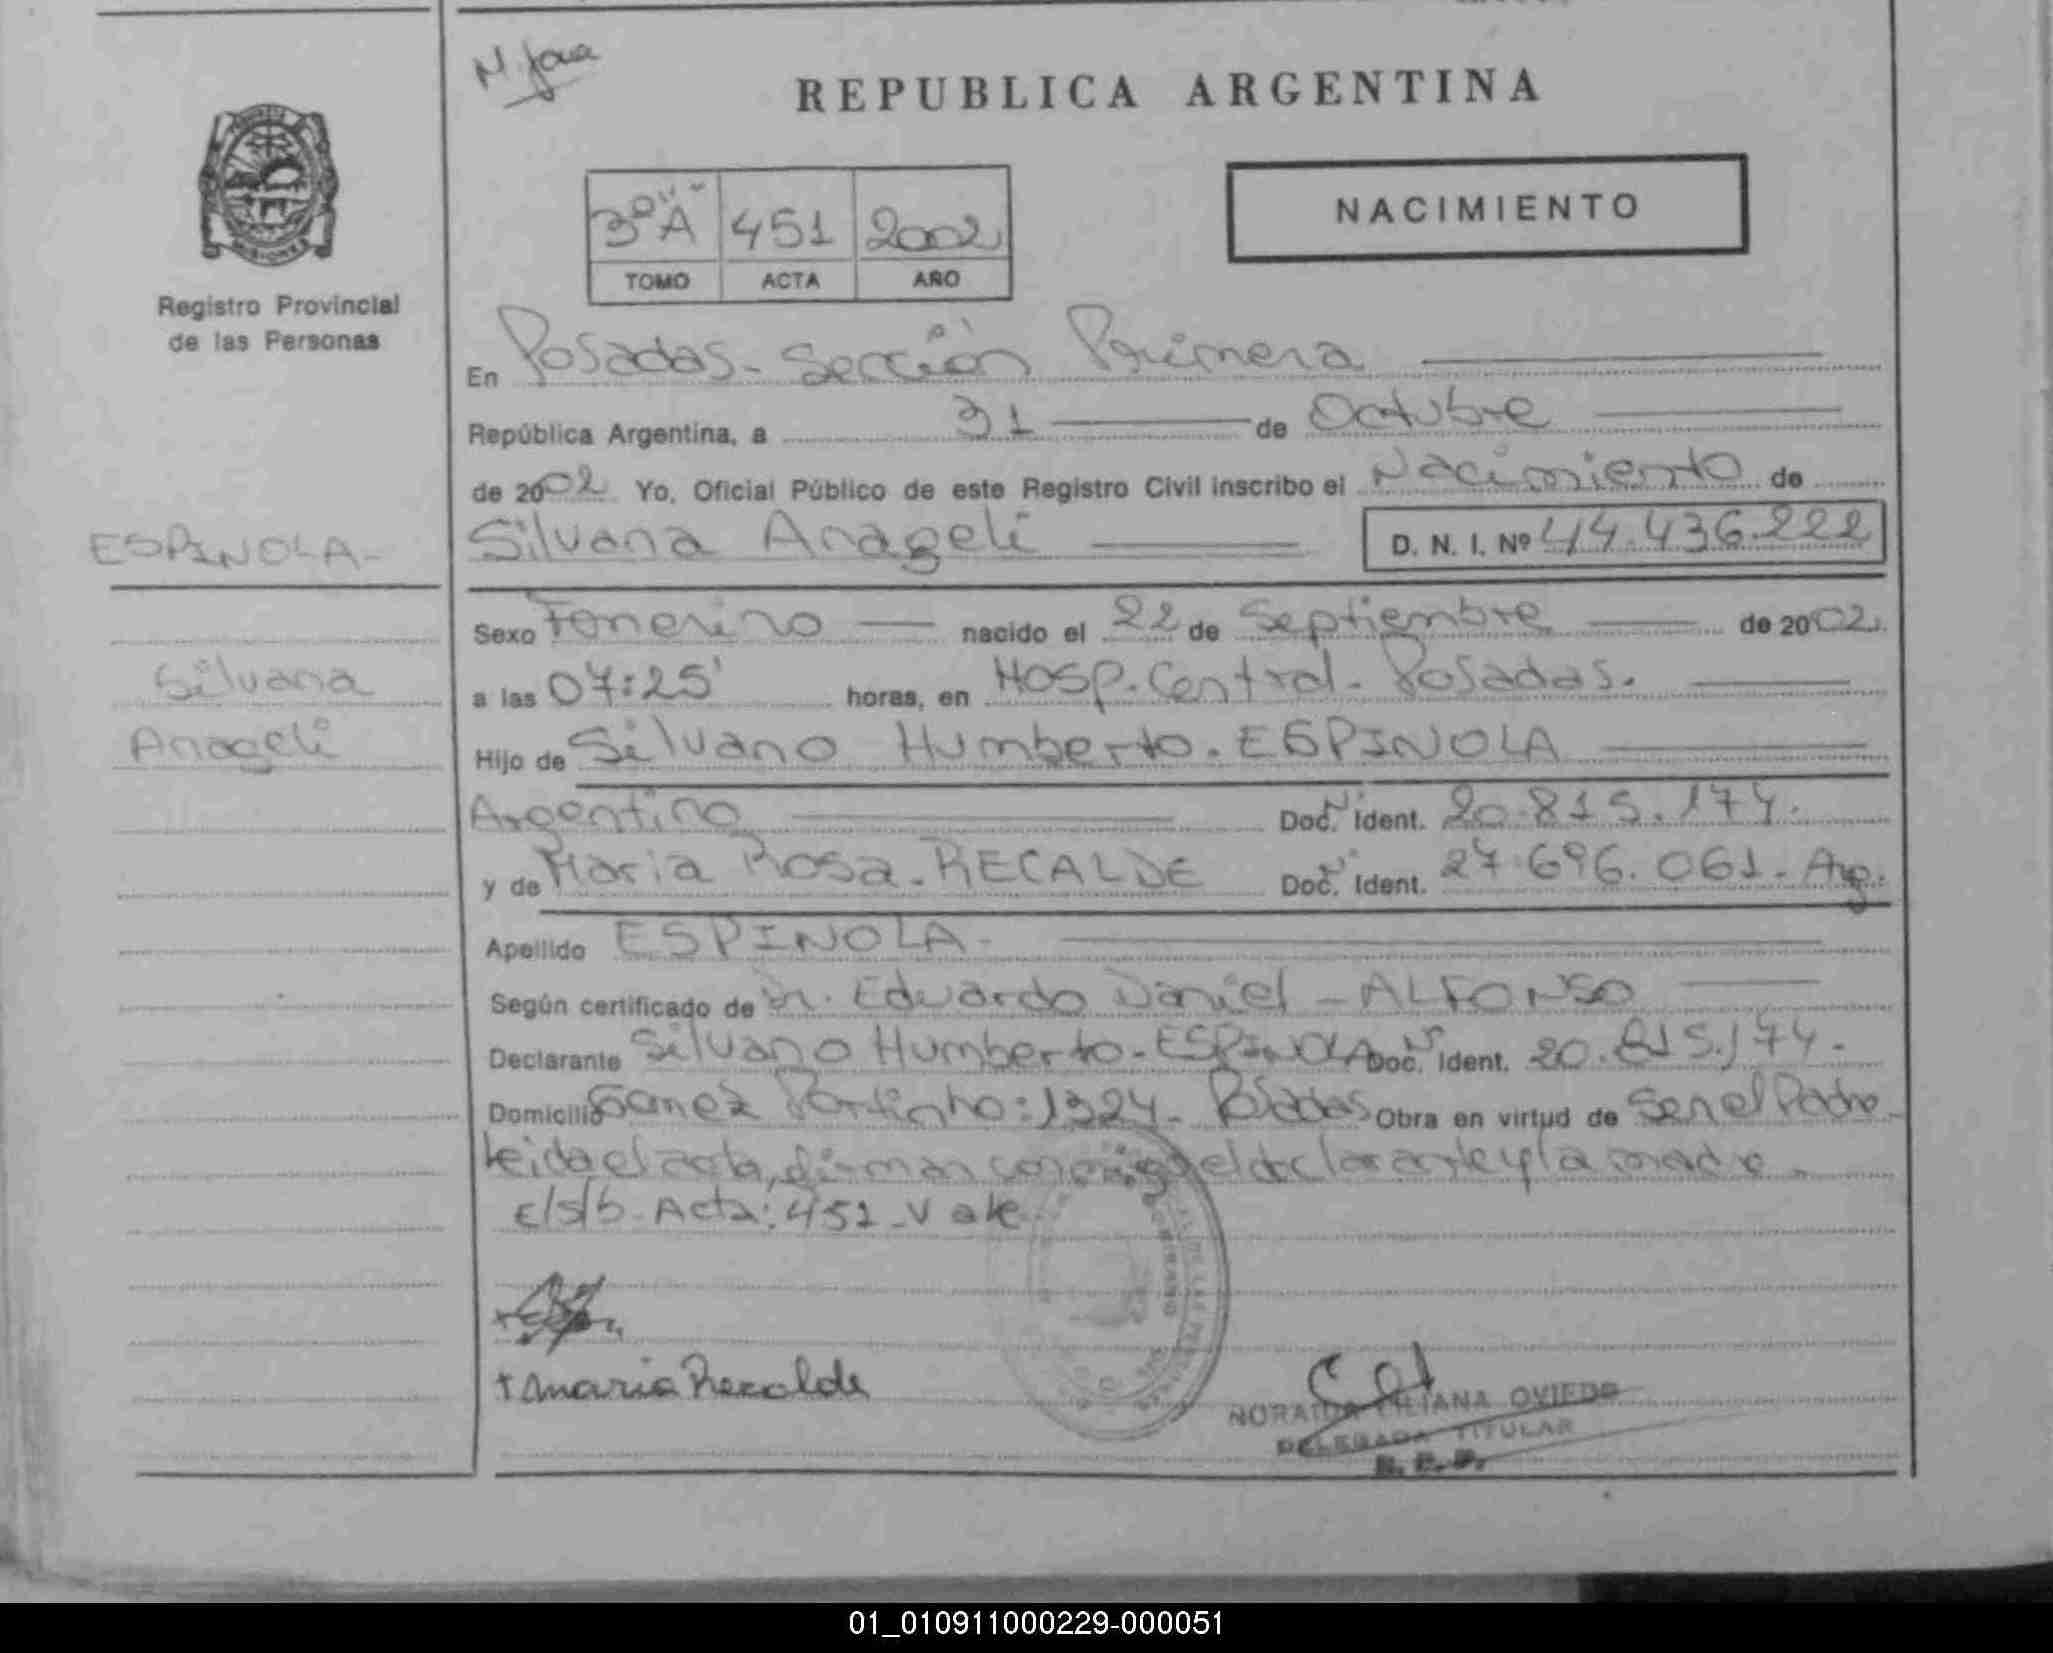 REPUBLICA ARGENTINA
NACIMIENTO
3º "A" 451 2002
TOMO ACTA AÑO
Registro Provincial
de las Personas
En Posadas - Sección Primera
República Argentina, a 31 de Octubre
de 2002 Yo, Oficial Público de este Registro Civil inscribo el Nacimiento de
ESPINOLA -
Silvana Anageli D. N. I. Nº 44.436.222
Sexo Femenino nacido el 22 de Septiembre de 2002
Silvana
Anageli
a las 07:25' horas, en Hosp. Central - Posadas.
Hijo de Silvano Humberto. ESPINOLA
Argentino Doc. Nº Ident. 20.815.174.
y de Maria Rosa. RECALDE Doc. Nº Ident. 27.696.061 - Arg.
Apellido ESPINOLA -
Según certificado de Dr. Eduardo Daniel - ALFONSO
Declarante Silvano Humberto - ESPINOLA Doc. Nº Ident. 20.815.174 -
Domicilio Gomez Portinho: 1324 - Posadas Obra en virtud de Ser el Padre -
Leida el acta, firman conmigo el declarante y la madre -
E/s/b - Acta: 451 - Vale
Maria Recalde
NORAIDA LILIANA OVIEDO
DELEGADA TITULAR
R. P. P.
01_010911000229-000051